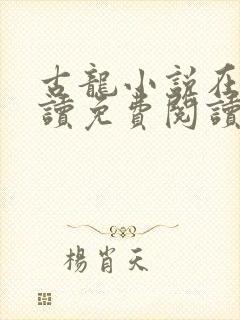 古龍小說在
讀免費閱讀
楊肖天